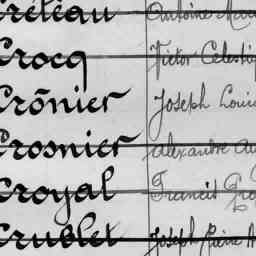 Créteau Antoine
Crocq Victor Célestin
Crõnier Joseph Louis
Crosnier Alexandre Au
Croyal Francis
Crublet Joseph Pierre